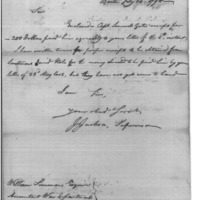 Sir
Enclosed is Capt. Samuel Gates receipt for
200 Dollars paid him agreeably to your letter of the 6th instant.
I have written twice for proper receipts to be obtained from
Lieutenant for the money paid to him by your
letter of 22d May last, but they have not yet come to hand
I am Sir,
your Obed Servt.
J Jackson, Supervisor
William Simmons Esquire
Accountant War Department